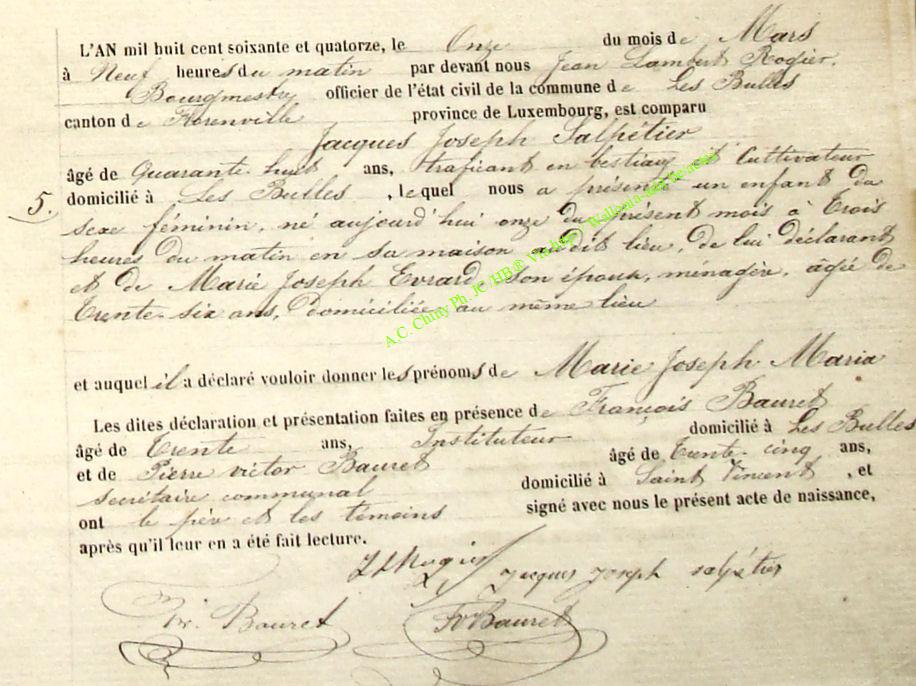 L'AN mil huit cent soixante et quatorze, le Onze du mois de Mars
à Neuf heures du matin par devant nous Jean Lambert Rogier,
Bourgmestre officier de l'état civil de la commune de Les Bulles
canton de Florenville province de Luxembourg, est comparu
Jacques Joseph Salpétier
âgé de Quarante-huit ans, traficant en bestiaux et Cultivateur
5. domicilié à Les Bulles, lequel nous a présenté un enfant du
sexe féminin, né aujourd'hui onze du présent mois à trois
heures du matin en sa maison audit lieu, de lui déclarant
et de Marie Joseph Evrard, son épouse, ménagère, âgée de
trente-six ans, domiciliée au même lieu
et auquel il a déclaré vouloir donner les prénoms de Marie Joseph Maria
Les dites déclaration et présentation faites en présence de François Bauret
âgé de trente ans, Instituteur domicilié à Les Bulles
et de Pierre victor Bauret âgé de trente-cinq ans,
secrétaire communal domicilié à Saint Vincent, et
ont le père et les témoins signé avec nous le présent acte de naissance,
après qu'il leur en a été fait lecture.
JLRogier Jacques Joseph salpétier
Fr. Bauret PVBauret
A.C. Chiny Ph. JC HB ©